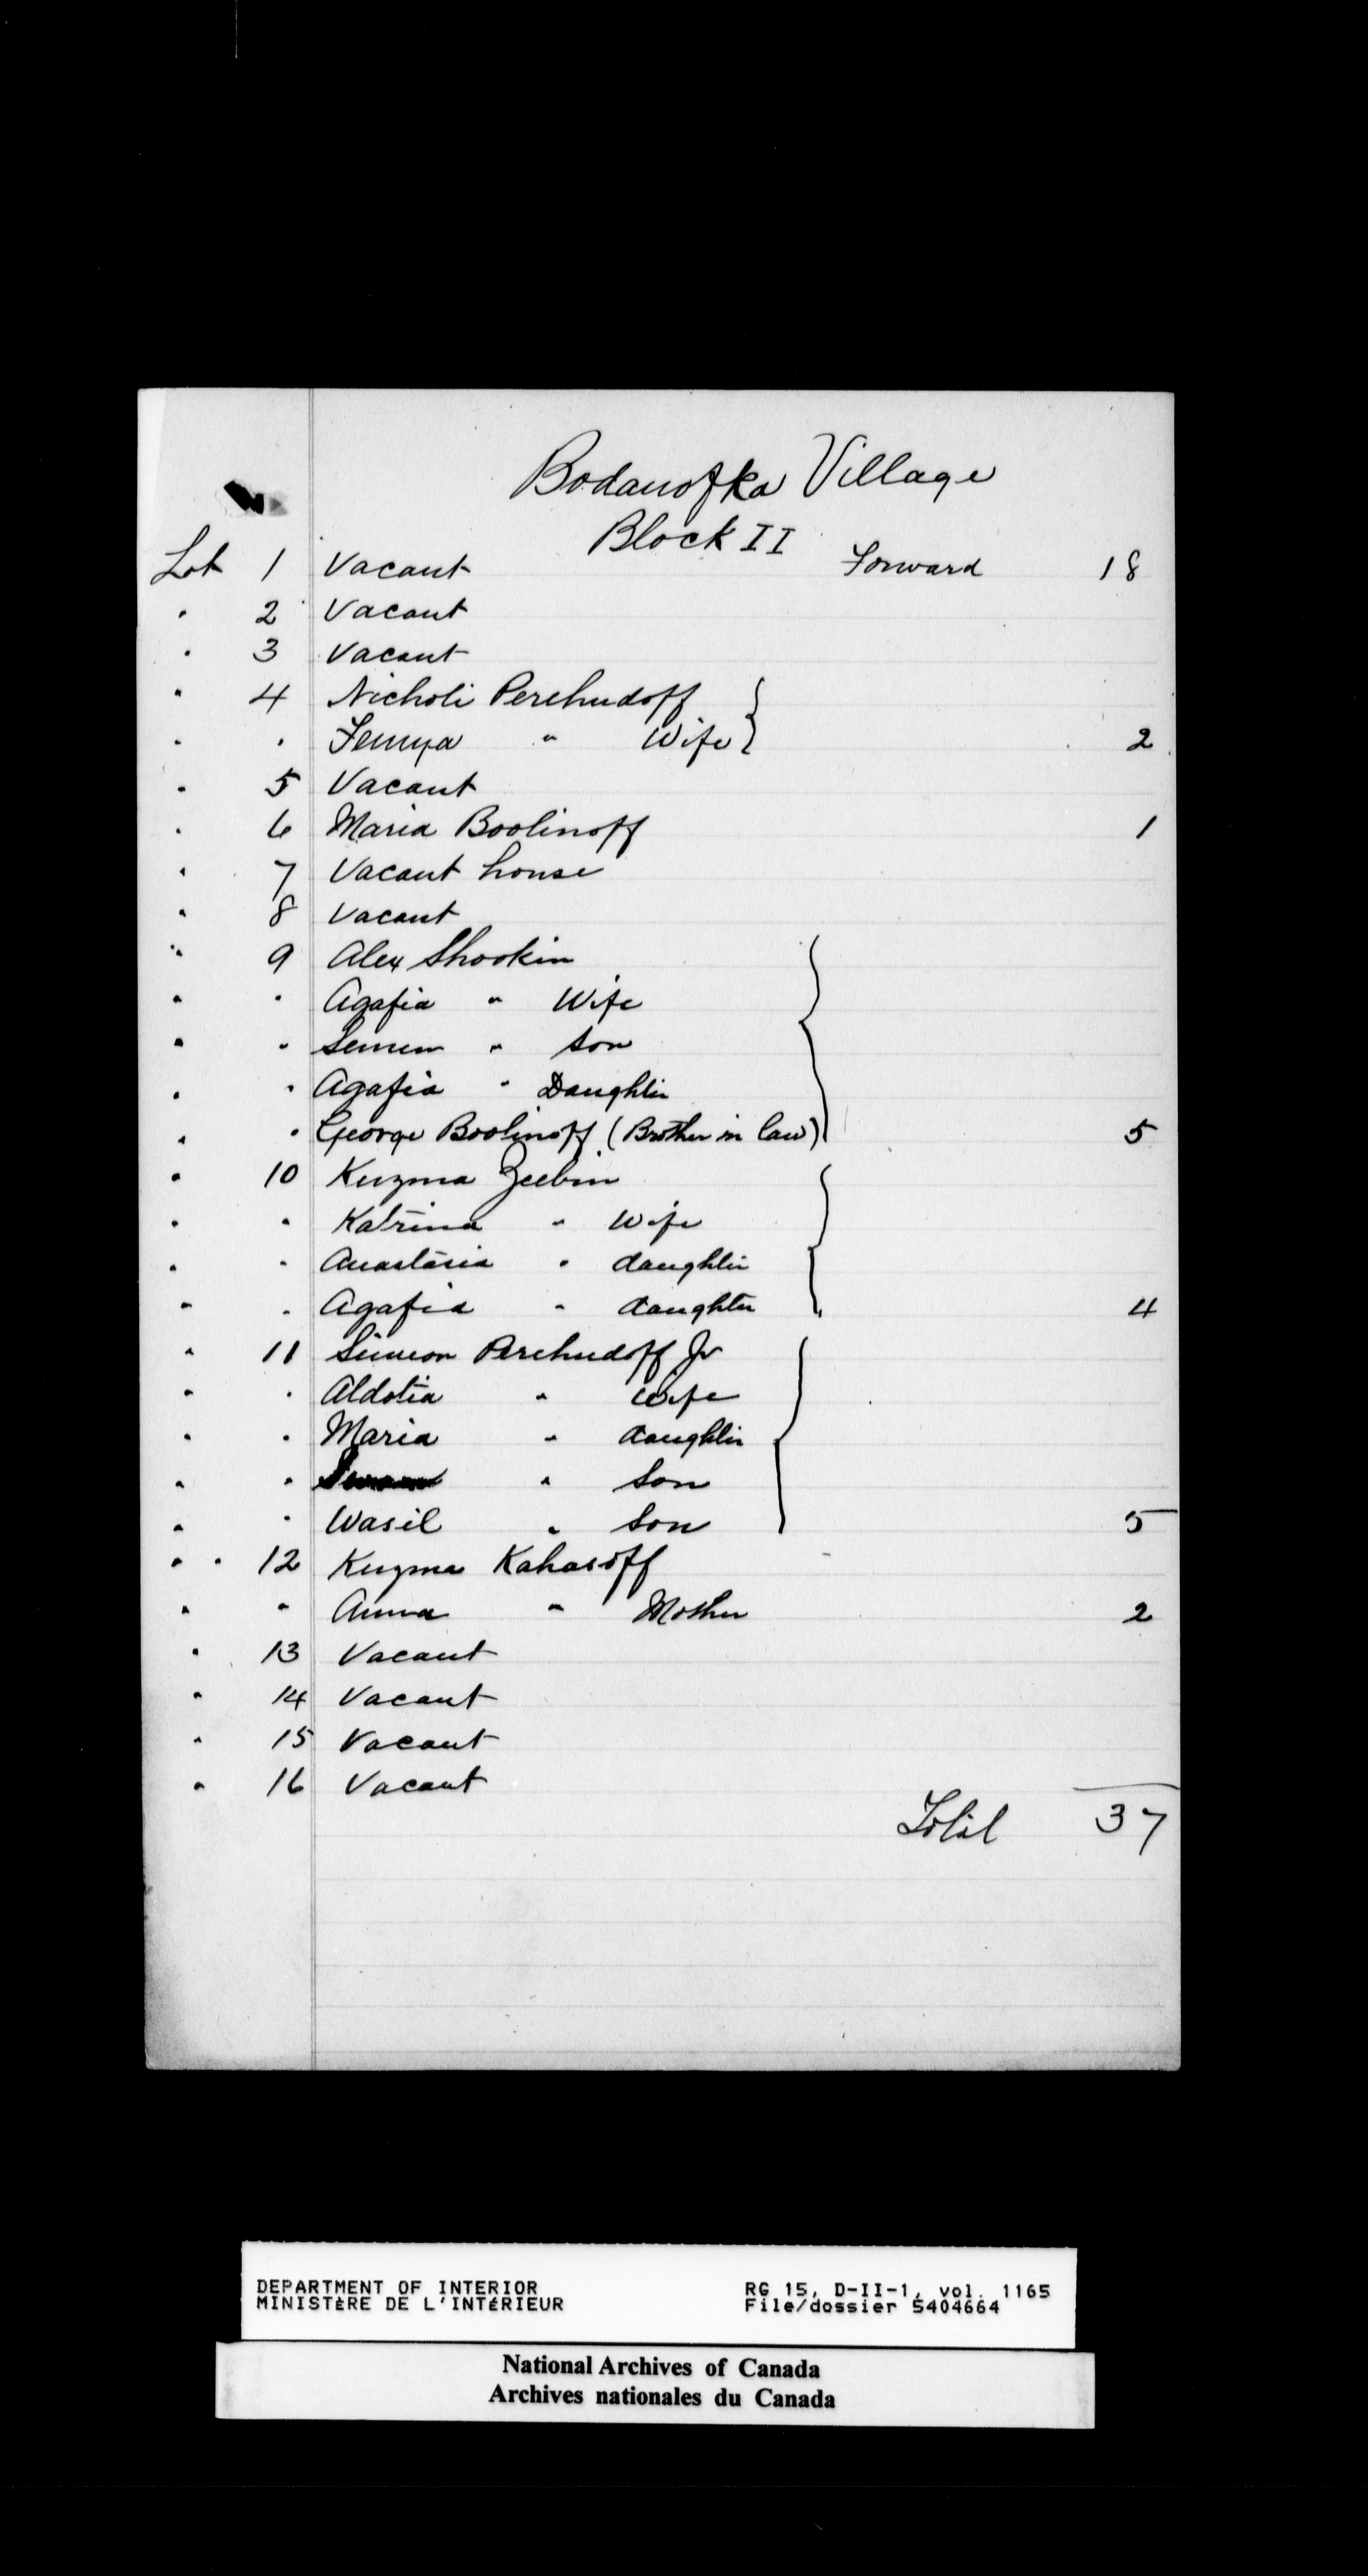 Bodanofka Village
Block II
Lot 1 Vacant Forward 18
" 2 Vacant
" 3 Vacant
" 4 Nicholi Perehudoff
" " Fenya " Wife 2
" 5 Vacant
" 6 Maria Boolinoff 1
" 7 Vacant house
" 8 Vacant
" 9 Alex Shookin
" " Agafia " Wife
" " Semen " Son
" " Agafia " Daughter
" " George Boolinoff (Brother in law) 5
" 10 Kuzma Zeebin
" " Katrina " Wife
" " Anastasia " daughter
" " Agafia " daughter 4
" 11 Simeon Perehudoff Jr
" " Aldotia " Wife
" " Maria " daughter
" " " Son
" " Wasil " Son 5
" " 12 Kuzma Kahasoff
" " Anna " Mother 2
" 13 Vacant
" 14 Vacant
" 15 Vacant
" 16 Vacant
Total 37
DEPARTMENT OF INTERIOR RG 15, D-II-1, vol. 1165
MINISTÈRE DE L'INTÉRIEUR File/dossier 5404664
National Archives of Canada
Archives nationales du Canada